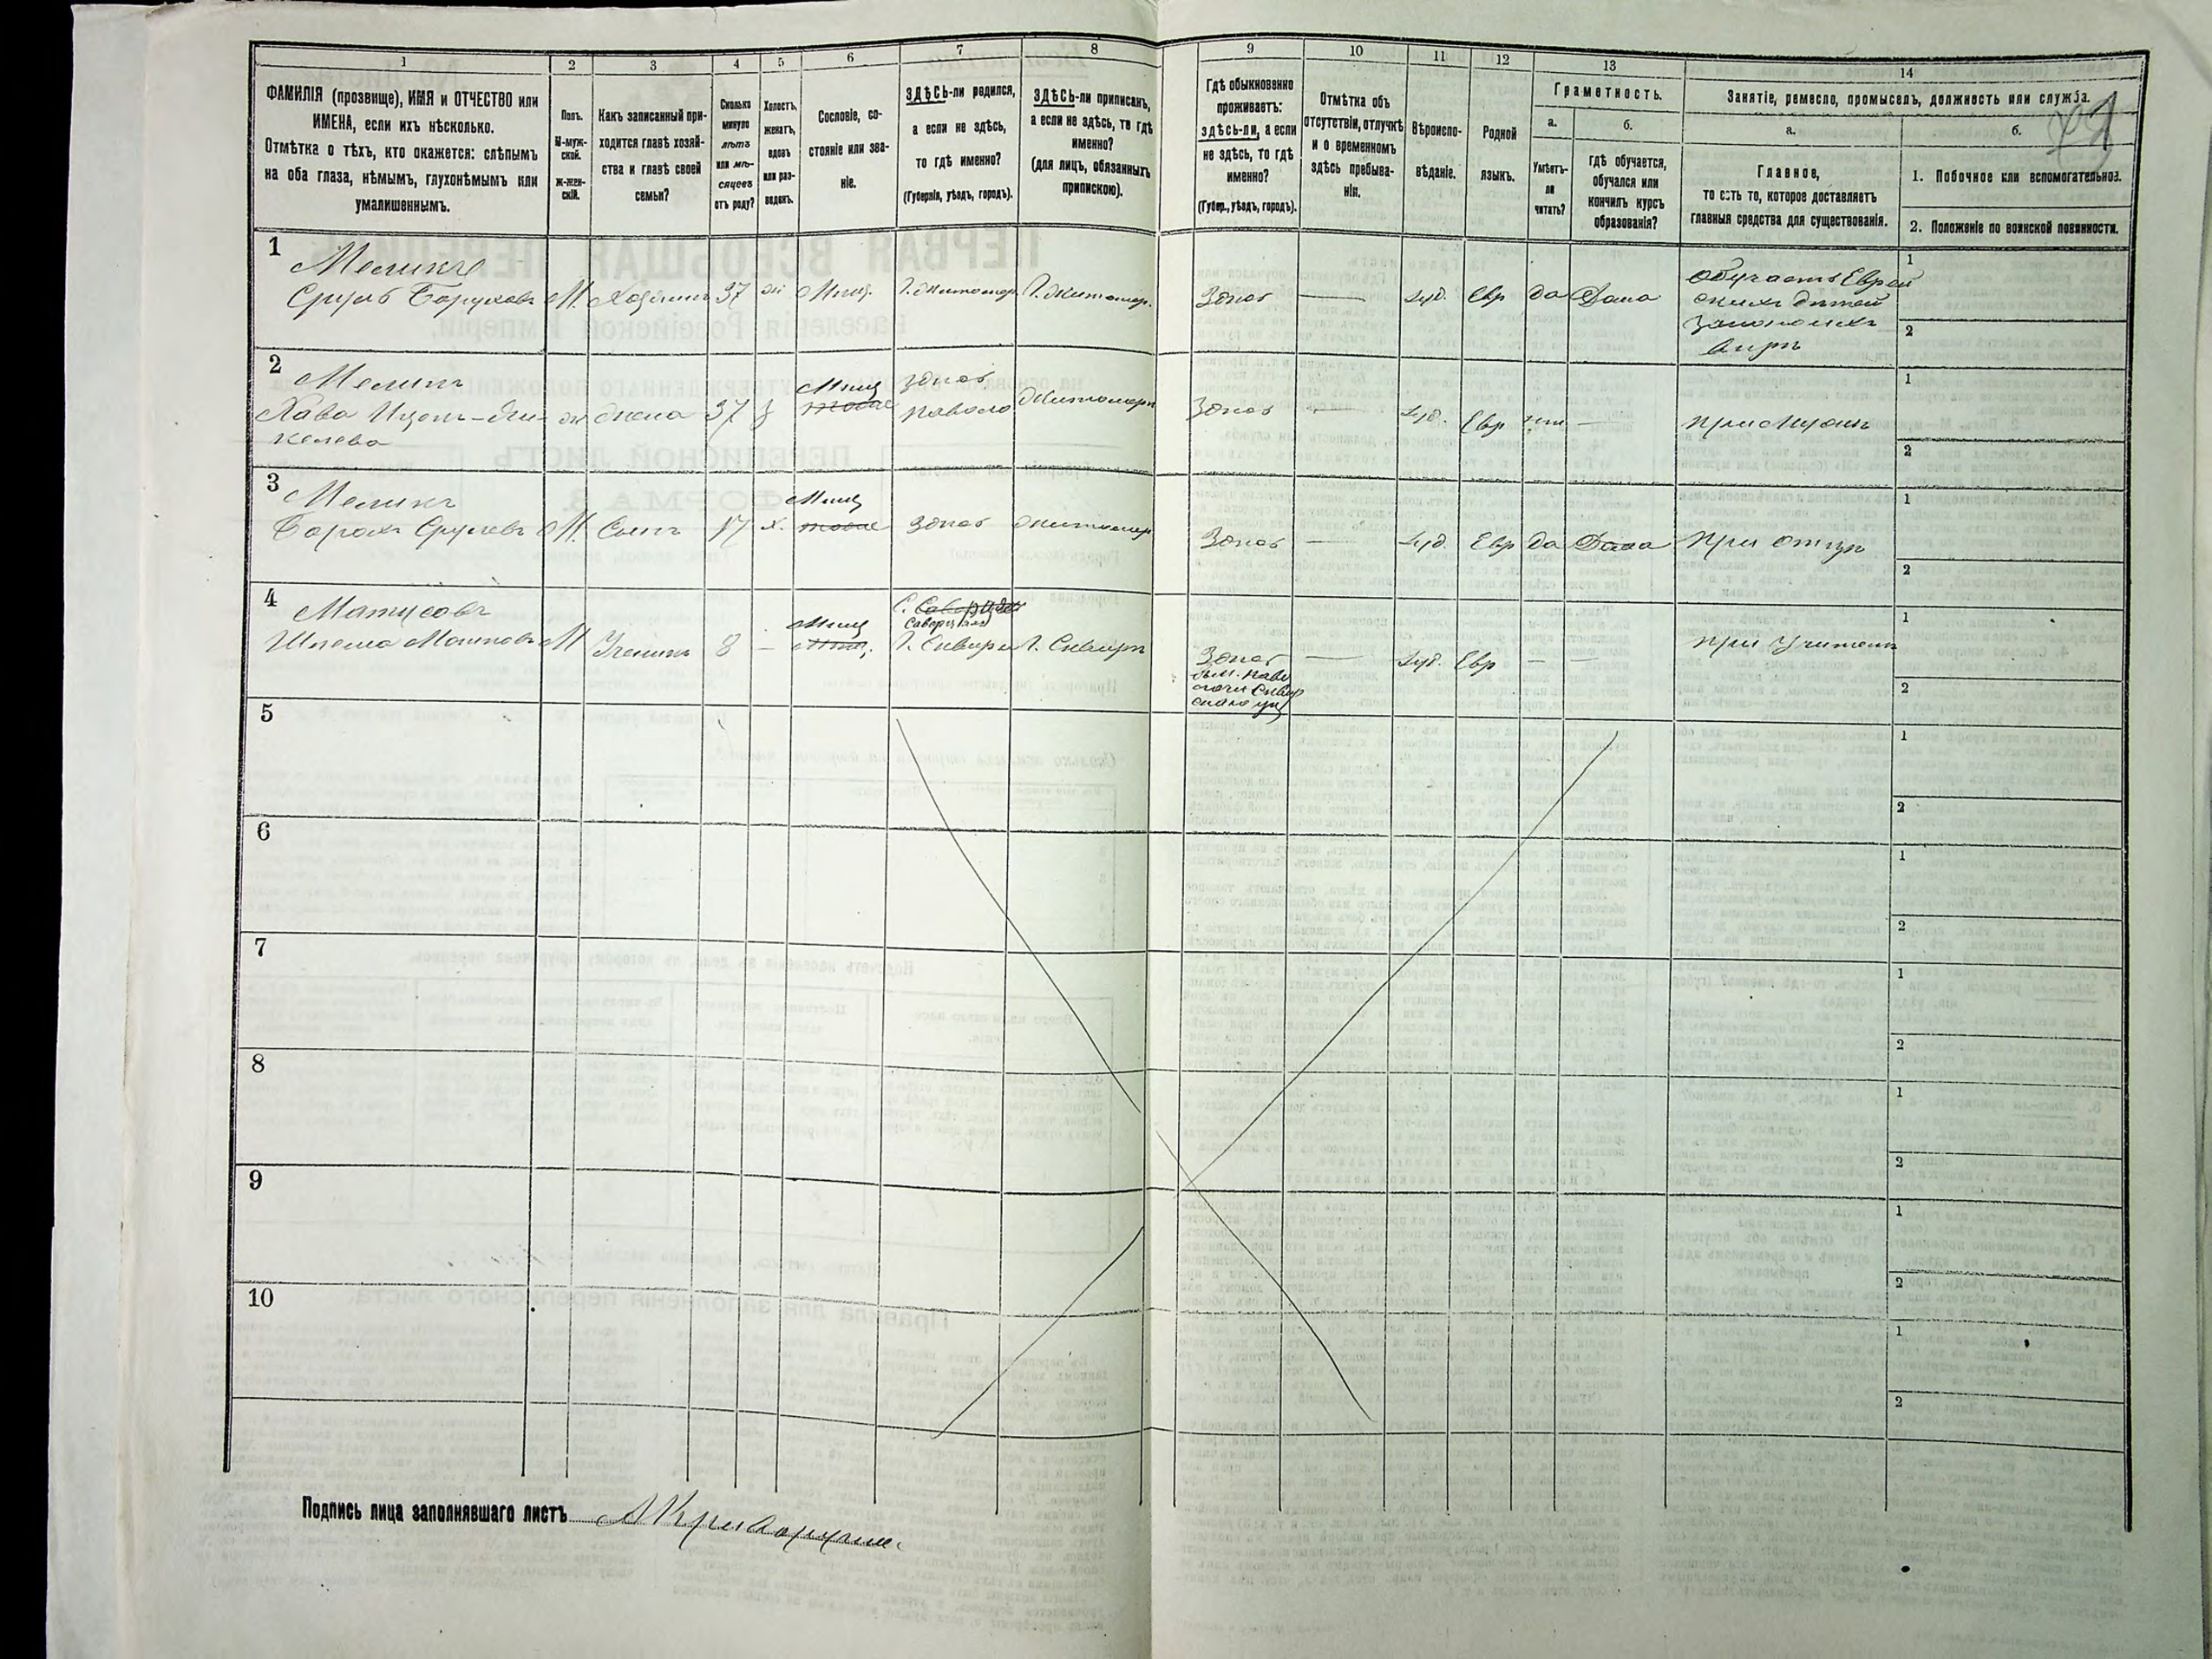 1
2
3
4
5
6
7
8
9
10
11
12
13
14
ФАМИЛІЯ (прозвище), ИМЯ и ОТЧЕСТВО или
ИМЕНА, если ихъ нѣсколько.
Отмѣтка о тѣхъ, кто окажется: слѣпымъ
на оба глаза, нѣмымъ, глухонѣмымъ или
умалишеннымъ.
Полъ.
М-муж-
ской.
ж-жен-
скій.
Какъ записанный при-
ходится главѣ хозяй-
ства и главѣ своей
семьи?
Сколько
минуло
лѣтъ
или мѣ-
сяцевъ
отъ роду?
Холостъ,
женатъ,
вдовъ
или раз-
веденъ.
Сословіе, со-
стояніе или зва-
ніе.
ЗДѢСЬ-ли родился,
а если не здѣсь,
то гдѣ именно?
(Губернія, уѣздъ, городъ).
ЗДѢСЬ-ли приписанъ,
а если не здѣсь, то гдѣ
именно?
(для лицъ, обязанныхъ
припискою).
Гдѣ обыкновенно
проживаетъ:
здѣсь-ли, а если
не здѣсь, то гдѣ
именно?
(Губер., уѣздъ, городъ).
Отмѣтка объ
отсутствіи, отлучкѣ
и о временномъ
здѣсь пребыва-
ніи.
Вѣроиспо-
вѣданіе.
Родной
языкъ.
Грамотность.
а.
б.
Умѣетъ-
ли
читать?
гдѣ обучается,
обучался или
кончилъ курсъ
образованія?
Занятіе, ремесло, промыселъ, должность или служба.
а.
б.
Главное,
то есть то, которое доставляетъ
главныя средства для существованія.
1. Побочное или вспомогательное.
2. Положеніе по воинской повинности.
1
Меликъ
Сруль Боруховъ М. Хозяинъ 37 ж Мѣщ. Г. Житомиръ Г. Житомиръ.
Здѣсь — Іуд. Евр да Дома
Обучаетъ Еврей
скихъ дѣтей
1
2
2
Меликъ
Хава Ицокъ-
ж жена 37 з Мѣщ
Здѣсь
Паволо Житомиръ
Здѣсь — Іуд. Евр нѣт —
при мужѣ
1
2
3
Меликъ
Борохъ Срулевъ М. Сынъ 17 х. Мѣщ Здѣсь Житомир
Здѣсь — Іуд. Евр да Дома при отцѣ
1
2
4
Матусовъ
Шлема М Ученикъ 8 — Мѣщ
Г. Сквиры Г. Сквиры
Здѣсь — Іуд. Евр — —
при Учителѣ
въ м. Паво
лочи Сквир
скаго уѣз
1
2
5
1
2
6
1
2
7
1
2
8
1
2
9
1
2
10
1
2
Подпись лица заполнявшаго листъ